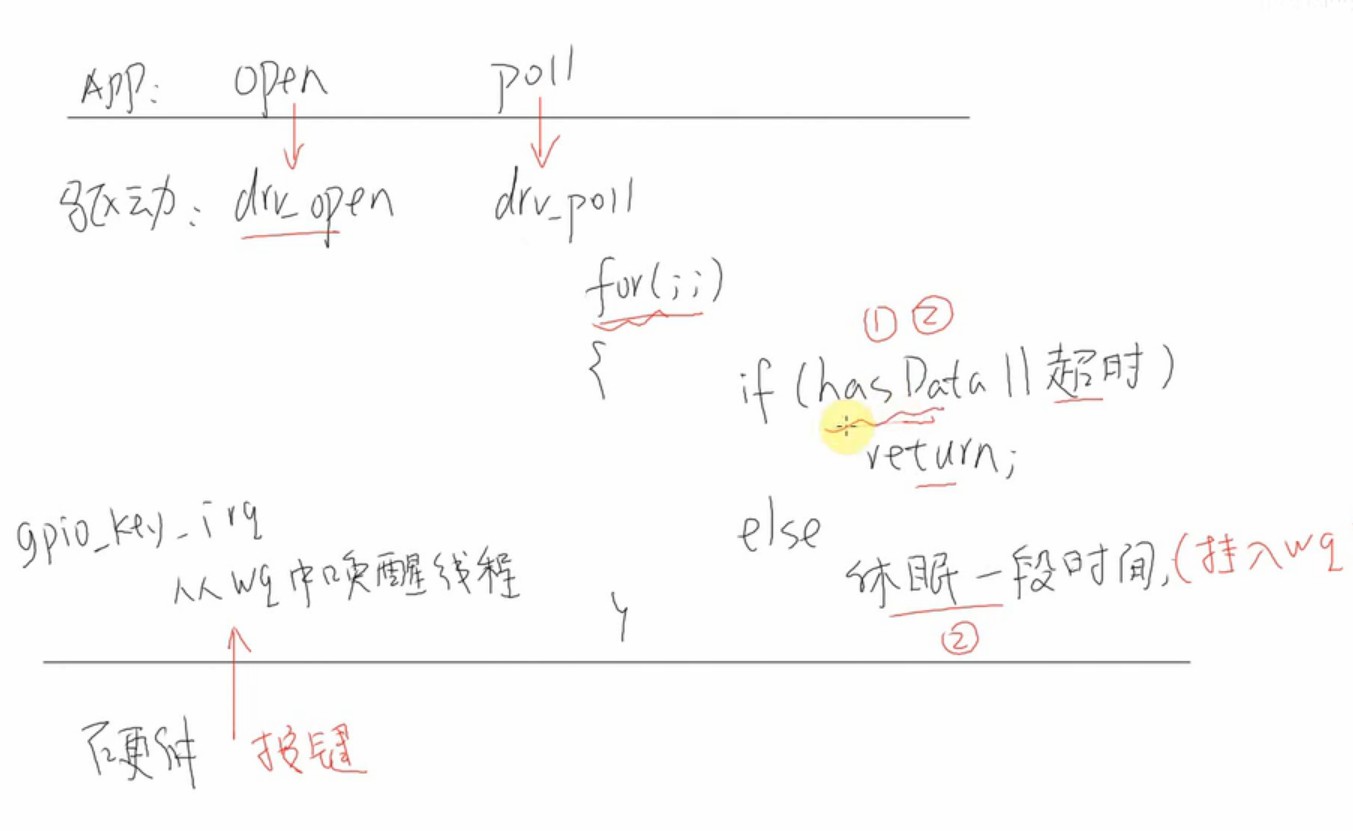 APP: open poll
驱动: drv_open drv_poll
for(;;)
{
① ②
if (hasData || 超时)
return;
else
休眠一段时间,(挂入wq
②
}
gpio_key_irq
从wq中唤醒线程
硬件 按键